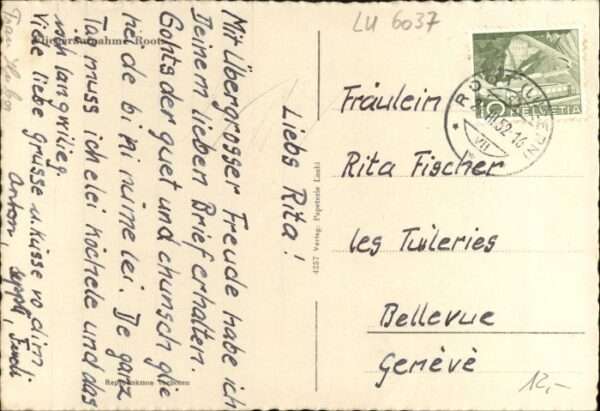 LU 6037
Fliegeraufnahme Root
Liebs Rita!
Mit Übergrosser Freude habe ich
Deinem lieben Brief erhalten.
Gohts der guet und chunsch glie
heide bi ni nüme lei. De ganz
Ta muss ich elei köchele und das
isch langwilieg.
Viele liebe Grüsse u. Küsse vo dim
Anton, Seppli,
Reproduktion verboten
4257 Verlag: Papeterie Lüscht
HELVETIA
10
ROOT (LUZERN)
VII
Fräulein
Rita Fischer
les Tuileries
Bellevue
Genève
12,-